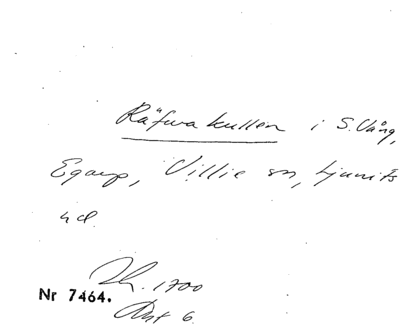 Räfwakullen i S. Vång,
Egarp, Villie sn, Ljunits
hd.
Lh. 1700
Nr 7464.
Akt 6